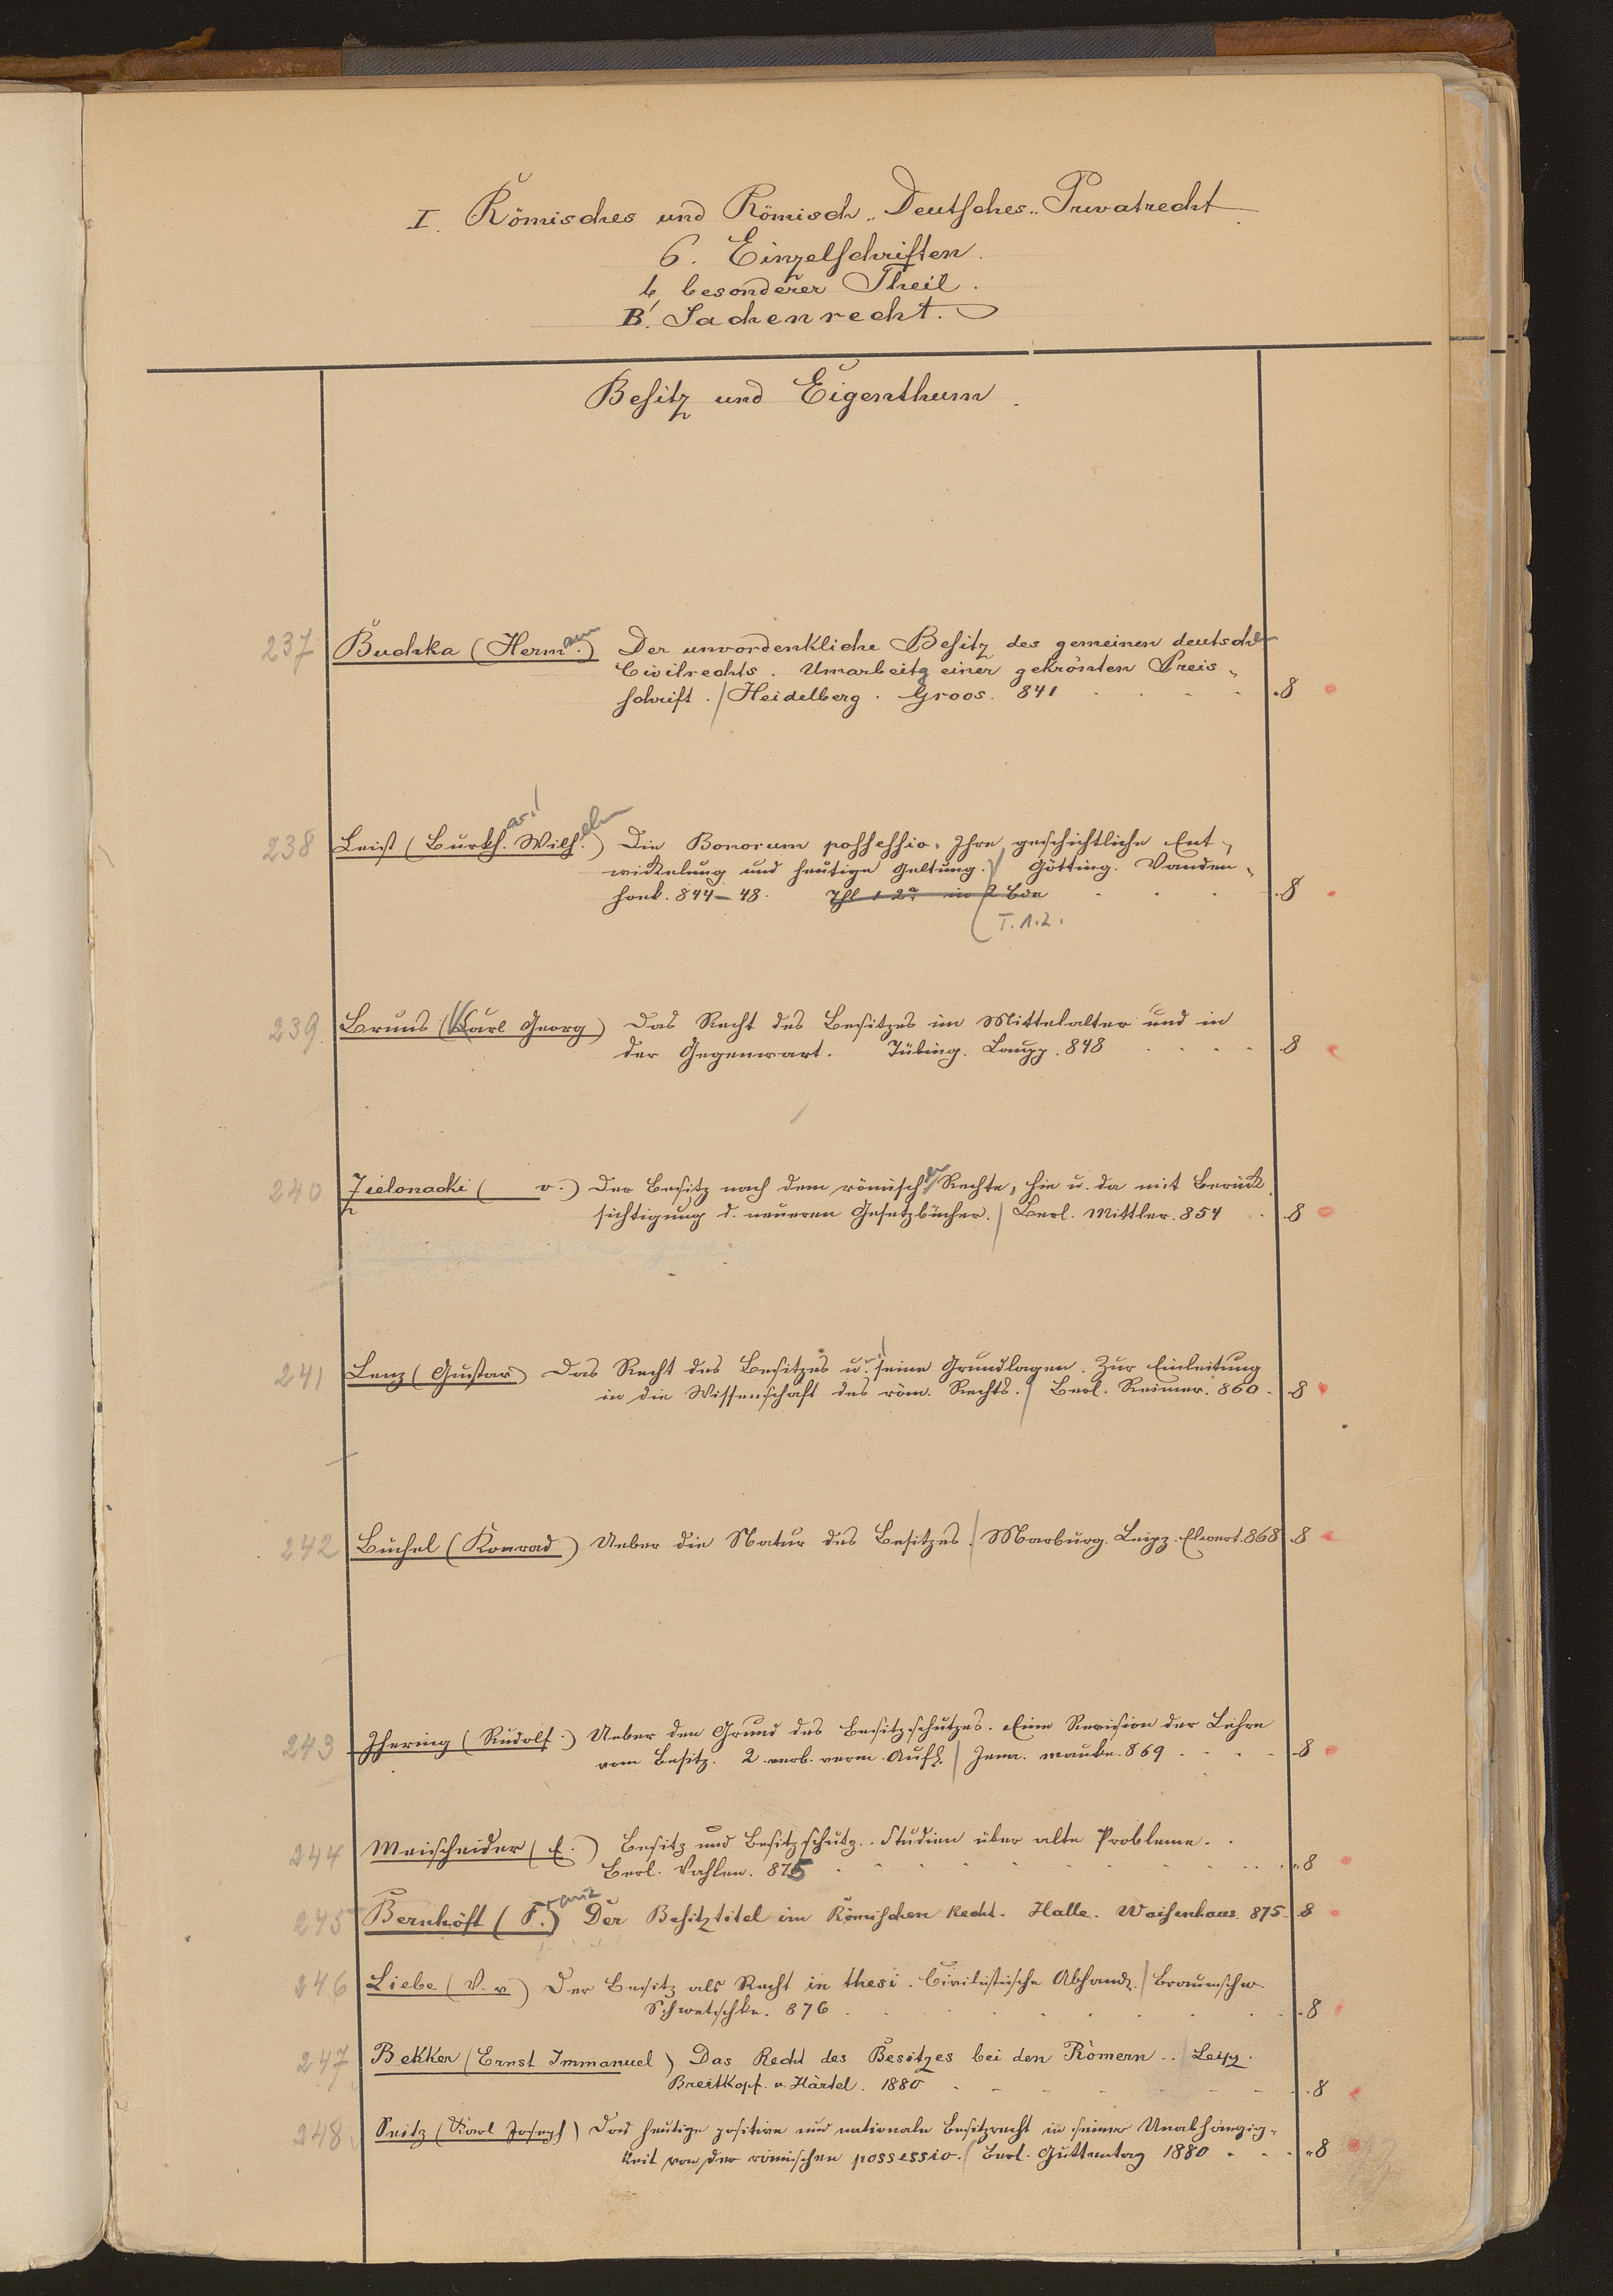 I. Römisches und Römisch-Deutsches-Privatrecht
6. Einzelschriften.
b, besonderer Theil.
B. Sachenrecht.
Besitz und Eigenthum.
237 Buchka (Hermann.) Der unvordenkliche Besitz des gemeinen deutschen
Civilrechts. Umarbeitg einer gekrönten Preis-
schrift. / Heidelberg. Groos. 841 8
238 Leist (Burkh. Wilhelm.) Die Bonorum possessio. Ihre geschichtliche Ent-
wickelung und heutige Geltung. / Götting. Vanden-
hoek. 844–48. Thl 1 2a in 2 Bde 8
T. 1.2.
239. Bruns (Karl Georg) Das Recht des Besitzes im Mittelalter und in
der Gegenwart. Tübing. Laupp. 848 8
240 Zielonacki ( v.) Der Besitz nach dem römischen Rechte, hie u. da mit Berück-
sichtigung d. neueren Gesetzbücher. / Berl. Mittler. 854 8
241 Lenz (Gustav) Das Recht des Besitzes u. seine Grundlagen. Zur Einleitung
in die Wissenschaft des röm. Rechts. / Berl. Reimer. 860 8
242 Büchel (Konrad) Ueber die Natur des Besitzes. / Marburg. Leipz. Elwert. 868 8
243 Jhering (Rudolf.) Ueber den Grund des Besitzschutzes. Eine Revision der Lehre
vom Besitz. 2 verb. verm. Aufl. / Jena. Mauke. 869 8
244 Meischeider (E.) Besitz und Besitzschutz. Studien über alte Probleme.
Berl. Vahlen. 875 8
245 Bernhöft (Franz) Der Besitztitel im Römischen Recht. Halle. Waisenhaus. 875 8
246 Liebe (V. v.) Der Besitz als Recht in thesi. Civilistische Abhandl. / Braunschw.
Schwetschke. 876 8
247 Bekker (Ernst Immanuel) Das Recht des Besitzes bei den Römern. / Leipz.
Breitkopf. u. Härtel. 1880 8
248 Seitz (Karl Joseph) Das heutige positive und nationale Besitzrecht in seiner Unabhängig-
keit von der römischen possessio. / Berl. Guttentag 1880 8